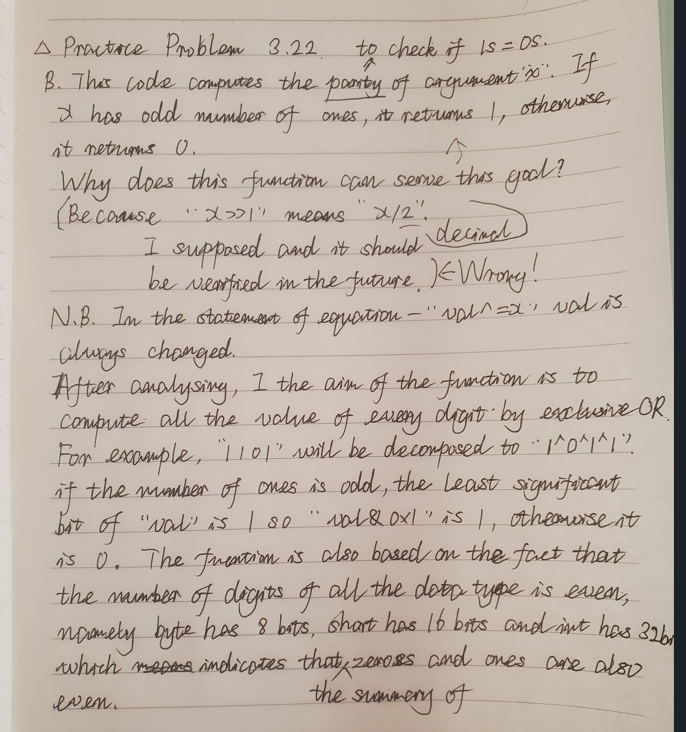 △ Practice Problem 3.22. to check if 1s = 0s.
B. This code computes the parity of argument "x". If
x has odd number of ones, it returns 1, otherwise,
it returns 0.
Why does this function can serve this goal?
(Because "x>>1" means "x/2".
decimal
I supposed and it should
be verified in the future.) ← Wrong!
N.B. In the statement of equation - "val ^= x", val is
always changed.
After analysing, I the aim of the function is to
compute all the value of every digit by exclusive OR.
For example, "1101" will be decomposed to "1^0^1^1".
if the number of ones is odd, the least significant
bit of "val" is 1 so "val & 0x1" is 1, otherwise it
is 0. The function is also based on the fact that
the number of digits of all the data type is even,
namely byte has 8 bits, short has 16 bits and int has 32bi
which means indicates that zeroes and ones are also
even. the summery of